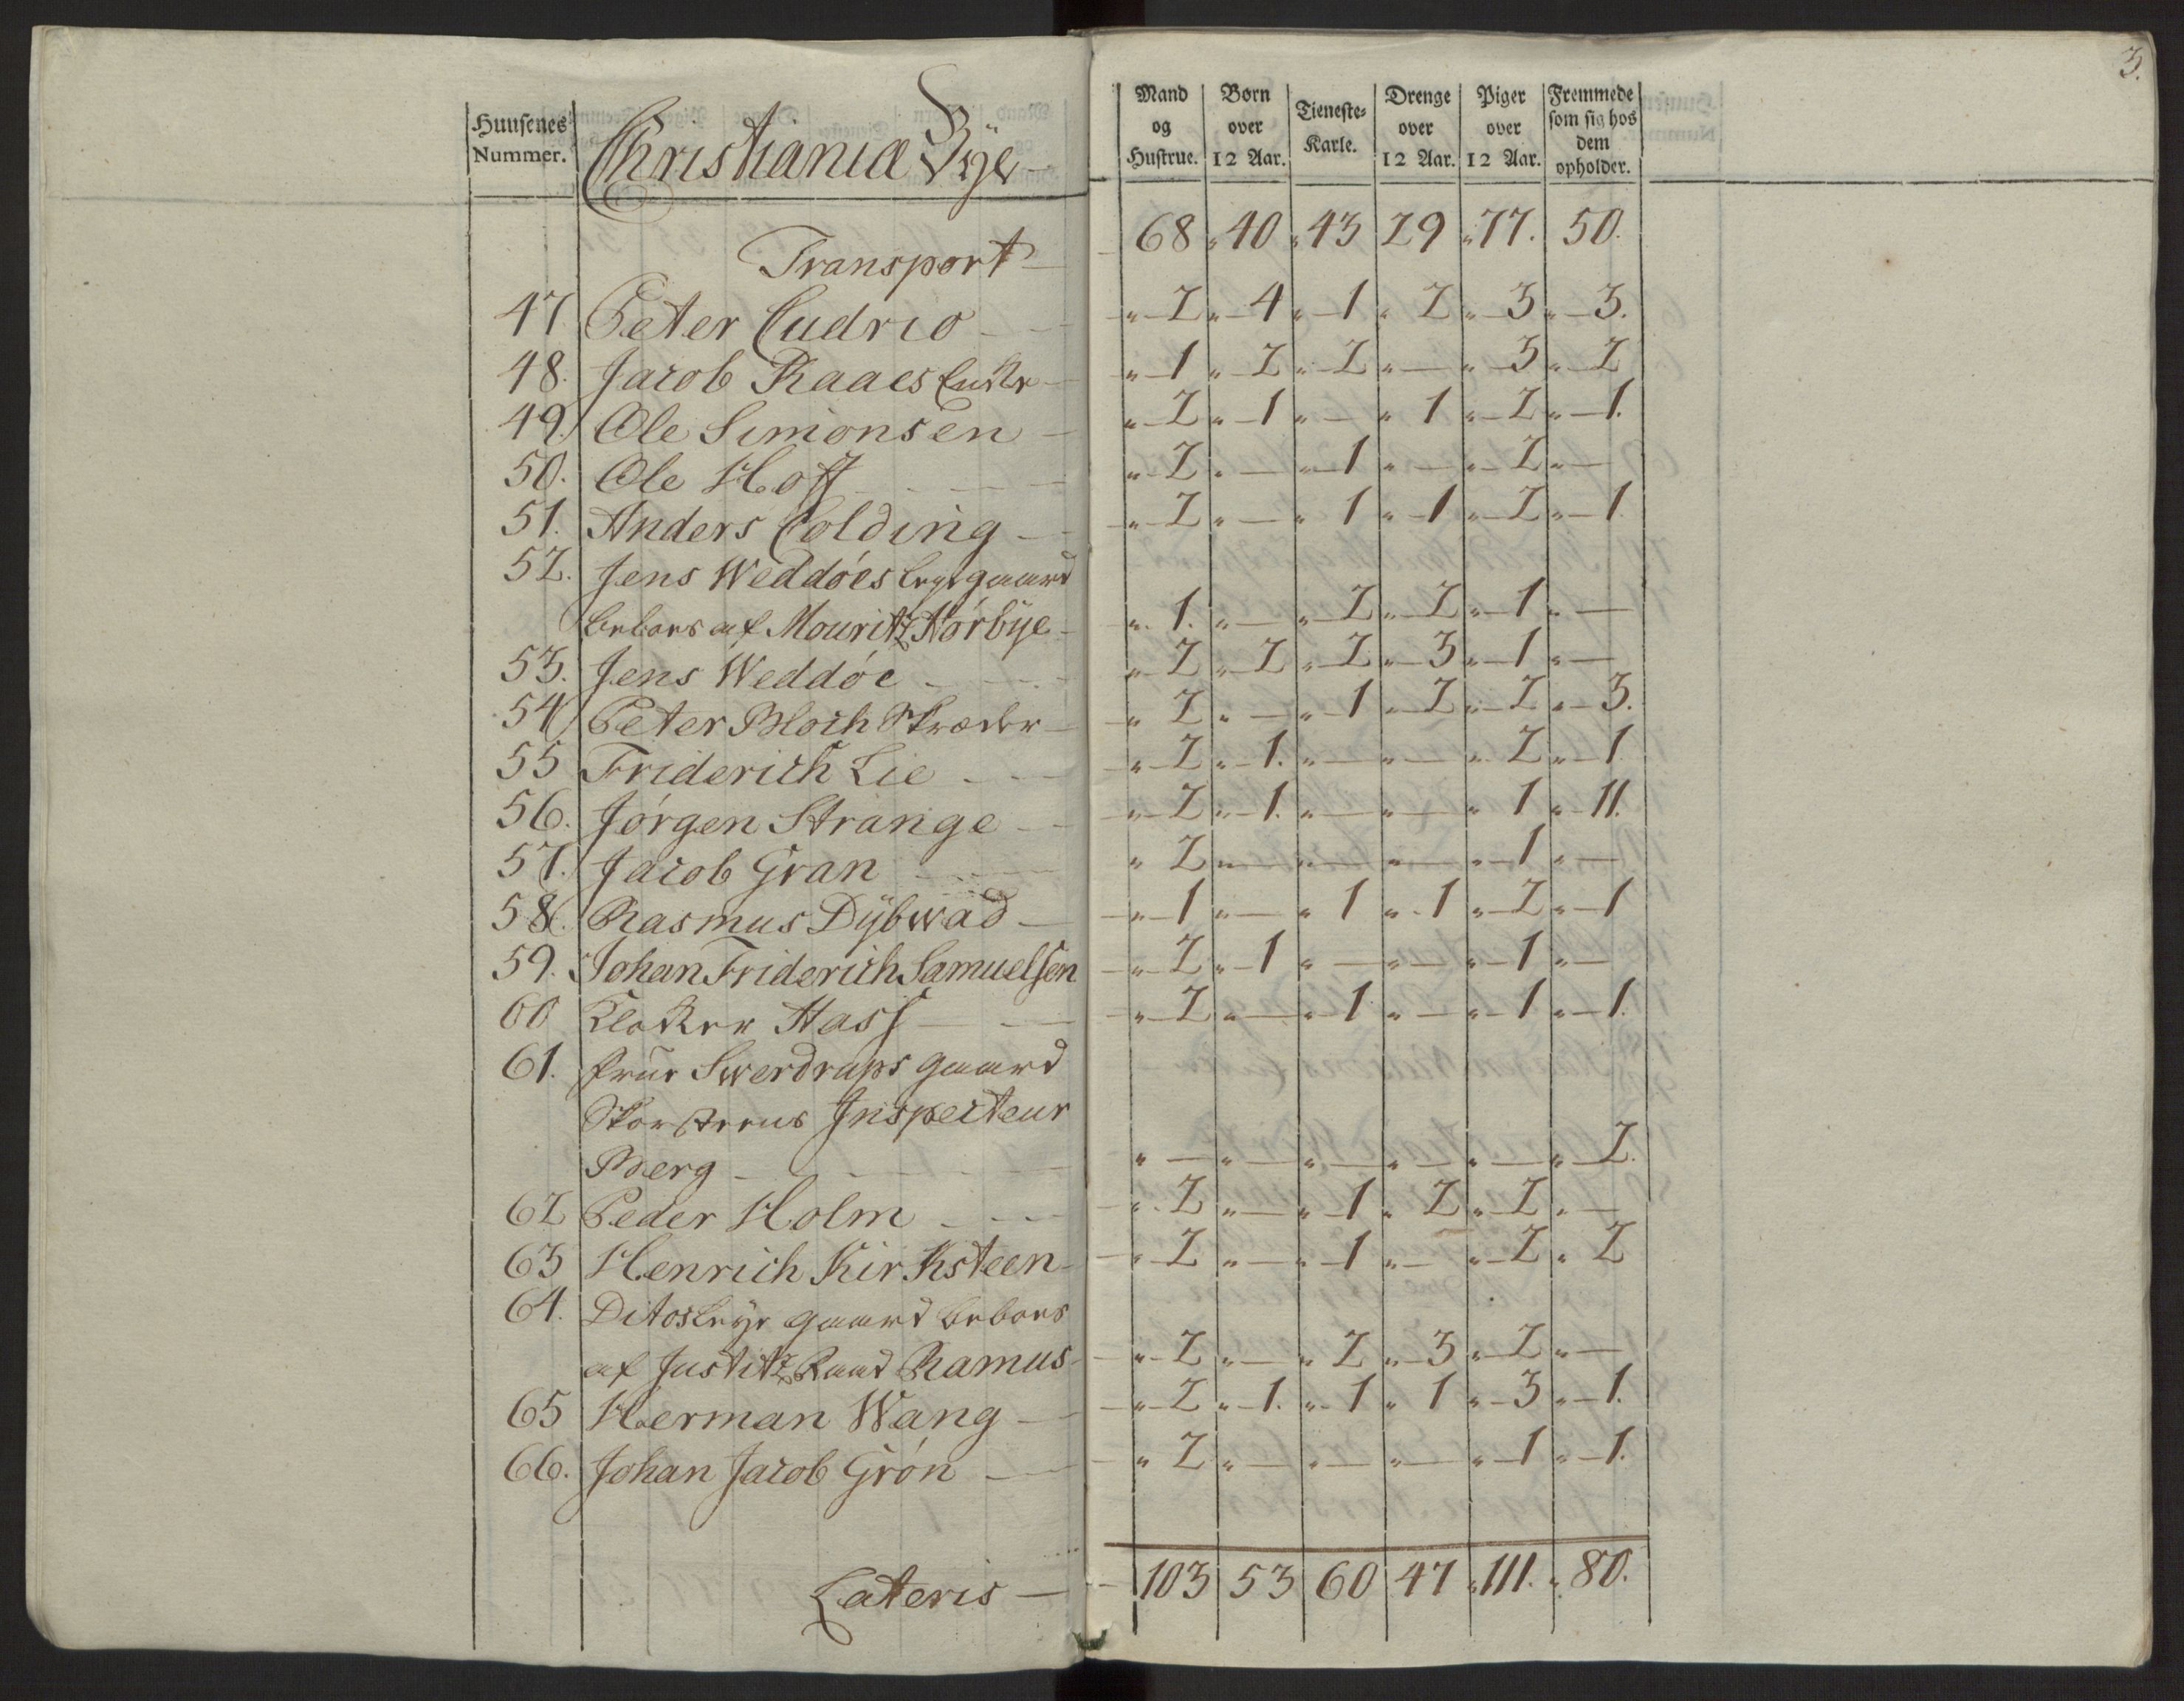 3.
Huusenes Nummer. Christiania Bÿe Mand og Hustrue. Børn over 12 Aar. Tieneste-Karle. Drenge over 12 Aar. Piger over 12 Aar. Fremmede som sig hos dem opholder.
Transport 68 40 43 29 77. 50.
47 Peter Cudrio 2 4 1 2 3 3.
48. Jacob Raaes Enke 1 2 2 — 3 2
49. Ole Simonsen 2 1 — 1 2 1.
50. Ole Hoff 2 — 1 — 2 —
51. Anders Colding 2 — 1 1 2 1
52. Jens Weddøes Leyegaard
beboes af Mouritz Nørbÿe 1. — 2 2 1 —
53. Jens Weddøe 2 2 2 3 1 —
54 Peter Bloch Skræder 2 — 1 2 2 3.
55 Friderich Lie 2 1. — — 2 1
56. Jørgen Strange 2 1. — — 1 11.
57. Jacob Gran 2 — — — 1 —
58. Rasmus Dÿbwad 1 — 1 1 2 1
59. Johan Friderich Samuelsen 2 1 — — 1 —
60 Klokker Hass 2 — 1 — 1 1.
61. frue Swerdrups gaard
Skorsteens Inspecteur
Berg — — — — — 2.
62 Peder Holm 2 — 1 2 2 —
63 Henrich Kirksteen 2 — 1 — 2 2
64. Ditos Leye gaard beboes
af Justitz Raad Ramus 2 — 2 3 2 —
65 Herman Wang 2 1. 1 1 3 1.
66. Johan Jacob Grøn 2 — — — 1 1.
Lateris 103 53 60 47 111. 80.